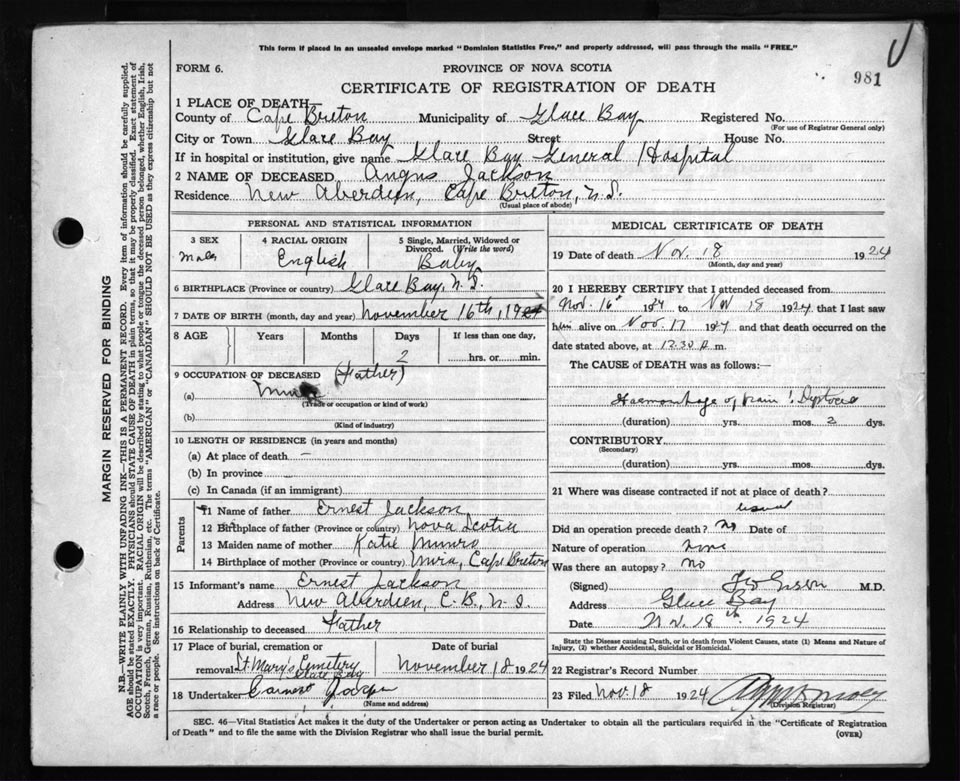 This form if placed in an unsealed envelope marked "Dominion Statistics Free," and properly addressed, will pass through the mails "FREE."
FORM 6.
PROVINCE OF NOVA SCOTIA
981
CERTIFICATE OF REGISTRATION OF DEATH
1 PLACE OF DEATH—
County of Cape Breton Municipality of Glace Bay Registered No.
(For use of Registrar General only)
City or Town Glace Bay Street House No.
If in hospital or institution, give name Glace Bay General Hospital
2 NAME OF DECEASED Angus Jackson
Residence New Aberdeen, Cape Breton, N.S.
(Usual place of abode)
PERSONAL AND STATISTICAL INFORMATION
3 SEX
Male
4 RACIAL ORIGIN
English
5 Single, Married, Widowed or Divorced. (Write the word)
Baby
6 BIRTHPLACE (Province or country) Glace Bay, N.S.
7 DATE OF BIRTH (month, day and year) November 16th, 1924
8 AGE
Years
Months
Days
2
If less than one day,
hrs. or min.
9 OCCUPATION OF DECEASED (Father)
(a)
(Trade or occupation or kind of work)
(b)
(Kind of industry)
10 LENGTH OF RESIDENCE (in years and months)
(a) At place of death —
(b) In province
(c) In Canada (if an immigrant)
Parents
11 Name of father Ernest Jackson
12 Birthplace of father (Province or country) Nova Scotia
13 Maiden name of mother Katie Munro
14 Birthplace of mother (Province or country) Mira, Cape Breton
15 Informant's name Ernest Jackson
Address New Aberdeen, C.B., N.S.
16 Relationship to deceased Father
17 Place of burial, cremation or removal St. Mary's Cemetery
Glace Bay
Date of burial
November 18 1924
18 Undertaker
(Name and address)
MEDICAL CERTIFICATE OF DEATH
19 Date of death Nov. 18 1924
(Month, day and year)
20 I HEREBY CERTIFY that I attended deceased from
Nov. 16 1924 to Nov 18 1924 that I last saw
him alive on Nov. 17 1924 and that death occurred on the
date stated above, at 12.30 m.
The CAUSE of DEATH was as follows:—
Haemorrhage of brain Dystocia
(duration) yrs. mos. 2 dys.
CONTRIBUTORY
(Secondary)
(duration) yrs. mos. dys.
21 Where was disease contracted if not at place of death?
usual
Did an operation precede death? No Date of
Nature of operation none
Was there an autopsy? No
(Signed) M.D.
Address Glace Bay
Date Nov. 18th. 1924
State the Disease causing Death, or in death from Violent Causes, state (1) Means and Nature of Injury, (2) whether Accidental, Suicidal or Homicidal.
22 Registrar's Record Number
23 Filed Nov. 18 1924
(Division Registrar)
SEC. 46—Vital Statistics Act makes it the duty of the Undertaker or person acting as Undertaker to obtain all the particulars required in the "Certificate of Registration
of Death" and to file the same with the Division Registrar who shall issue the burial permit.
(OVER)
MARGIN RESERVED FOR BINDING
N.B.—WRITE PLAINLY WITH UNFADING INK—THIS IS A PERMANENT RECORD. Every item of information should be carefully supplied.
AGE should be stated EXACTLY. PHYSICIANS should STATE CAUSE OF DEATH in plain terms, so that it may be properly classified. Exact statement of
OCCUPATION is very important. RACIAL ORIGIN will be described by stating to what people or tongue the deceased person belonged, whether English, Irish,
Scotch, French, German, Russian, Ruthenian, etc. The terms "AMERICAN" or "CANADIAN" SHOULD NOT BE USED as they express citizenship but not
a race or people. See instructions on back of Certificate.